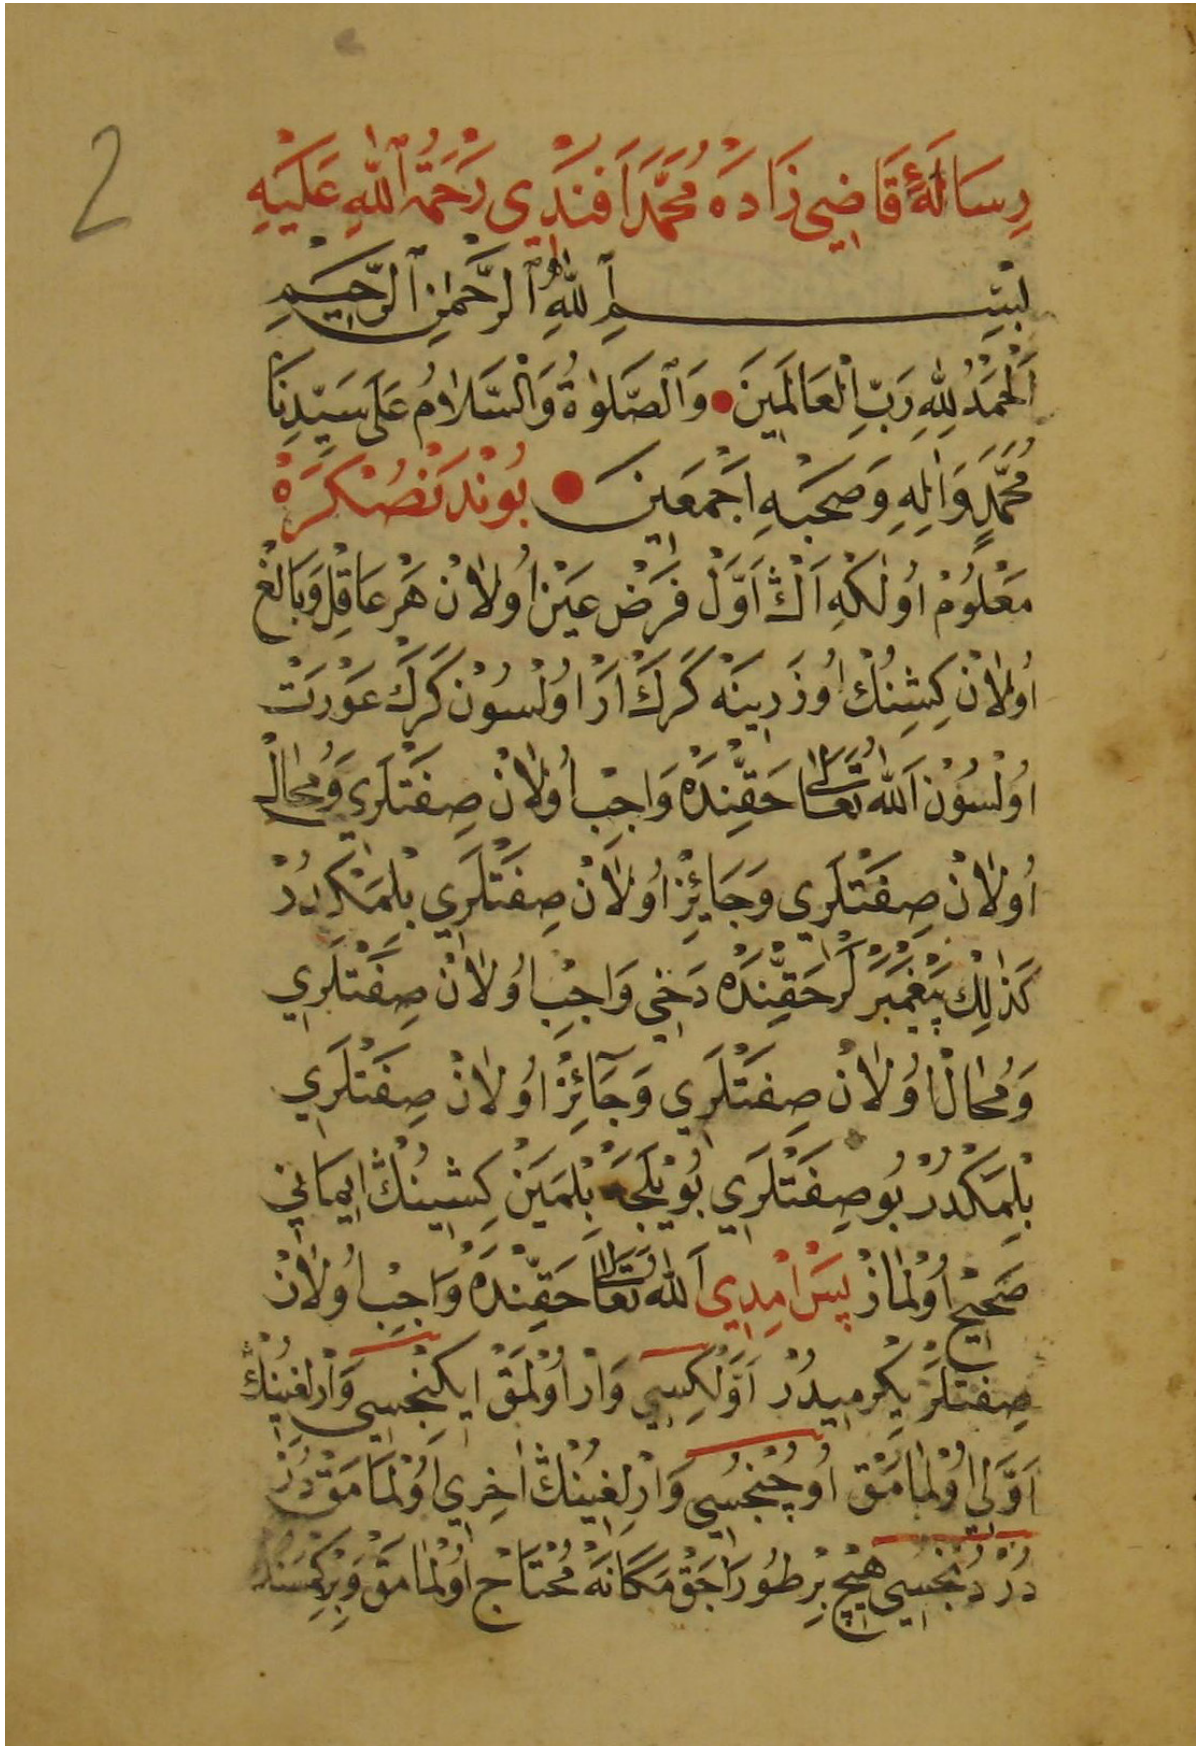 2
رِسَالَۀِ قَاضِي زَادَه مُحَمَّدْ اَفَنْدِي رَحْمَةُ ٱللّٰهِ عَلَيْهِ
بِسْمِ ٱللّٰهِ ٱلرَّحْمٰنِ ٱلرَّحِيمِ
اَلْحَمْدُ لِلّٰهِ رَبِّ الْعَالَمِينَ • وَالصَّلٰوةُ وَالسَّلَامُ عَلَى سَيِّدِنَا
مُحَمَّدٍ وَاٰلِهِ وَصَحْبِهِ اَجْمَعِينَ • بُونْدَنْصُكْرَهْ
مَعْلُومْ اُولَكِه اَڭْ اَوَّلْ فَرْضِ عَيْنْ اُولَانْ هَرْ عَاقِلْ وَبَالِغْ
اُولَانْ كِشِنُڭْ اُوزَرِينَه كَرَكْ اَرْ اُولْسُونْ كَرَكْ عَوْرَتْ
اُولْسُونْ اَللّٰهُ تَعَالَى حَقِّنْدَهْ وَاجِبْ اُولَانْ صِفَتْلَرِي وَمُحَالْ
اُولَانْ صِفَتْلَرِي وَجَائِزْ اُولَانْ صِفَتْلَرِي بِلْمَكْدُرْ
كَذٰلِكْ پَيْغَمْبَرْلَرْ حَقِّنْدَهْ دَخِي وَاجِبْ اُولَانْ صِفَتْلَرِي
وَمُحَالْ اُولَانْ صِفَتْلَرِي وَجَآئِزْ اُولَانْ صِفَتْلَرِي
بِلْمَكْدُرْ بُو صِفَتْلَرِي بُويْلَجَه بِلْمَيَنْ كِشِينُڭْ اِيمَانِي
صَحِيحْ اُولْمَازْ پَسْ اِمْدِي اَللّٰهُ تَعَالَى حَقِّنْدَهْ وَاجِبْ اُولَانْ
صِفَتْلَرْ يِكِرْمِيدُرْ اَوَّلْكِسِي وَارْ اُولْمَقْ اِيكِنْجِسِي وَارْلِغِينُڭْ
اَوَّلِي اُولْمَامَقْ اُوچُنْجُسِي وَارْلِغِينُڭْ اٰخِرِي اُولْمَامَقْدُرْ
دُرْدُنْجِسِي هِيچْ بِرْ طُورَاجَقْ مَكَانَهْ مُحْتَاجْ اُولْمَامَقْ وَبِرْكِمْسَنَه